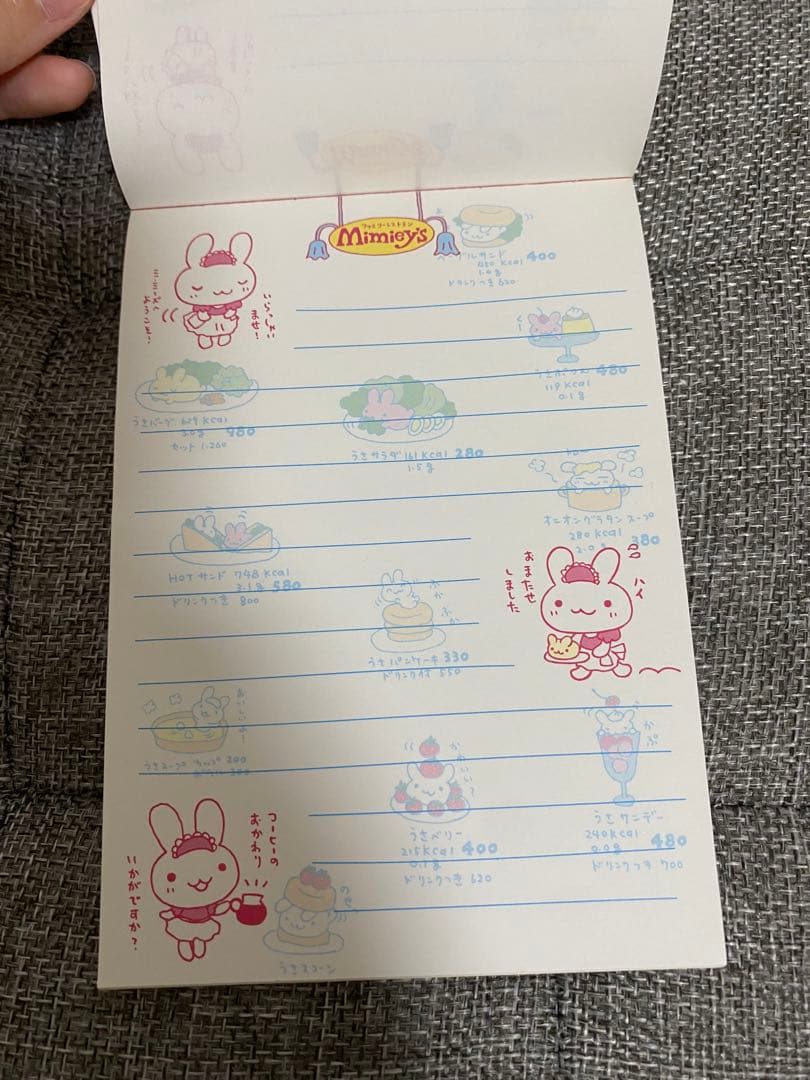 ファミリーレストラン
Mimiey's
ミミーズへ
ようこそ!
いらっしゃい
ませ!
ベーグルサンド 400
450 Kcal
1.0g
ドリンクつき 620
480
119 Kcal
0.1g
うさバーグ 629 Kcal
3.0g 980
セット 1.200
うさサラダ 161 Kcal 280
1.5g
オニオングラタンスープ
280 Kcal
2.0g 380
HOTサンド 748 Kcal
2.1g 580
ドリンクつき 800
おまたせ
しました
ハイ
ふか
ふか
うさパンケーキ 330
ドリンク付 550
うさスープ カップ 200
かわいい?
かぷ
うさベリー
215 Kcal 400
0.1g
ドリンクつき 620
うさサンデー
240 Kcal
0.0g 480
ドリンクつき 700
コーヒーの
おかわり
いかがですか?
うさスコーン